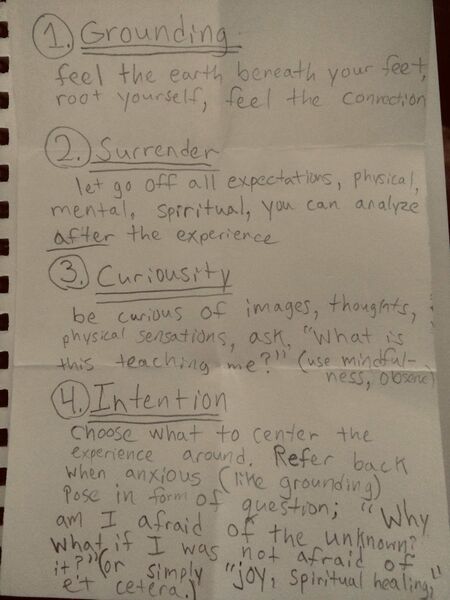 1. Grounding
feel the earth beneath your feet,
root yourself, feel the connection
2. Surrender
let go off all expectations, physical,
mental, spiritual, you can analyze
after the experience
3. Curiousity
be curious of images, thoughts,
physical sensations, ask, "What is
this teaching me?" (use mindful-
ness, observe)
4. Intention
Choose what to center the
experience around. Refer back
when anxious (like grounding)
Pose in form of question; "Why
am I afraid of the unknown?
What if I was not afraid of
it?" (or simply "joy, spiritual healing,"
et cetera.)